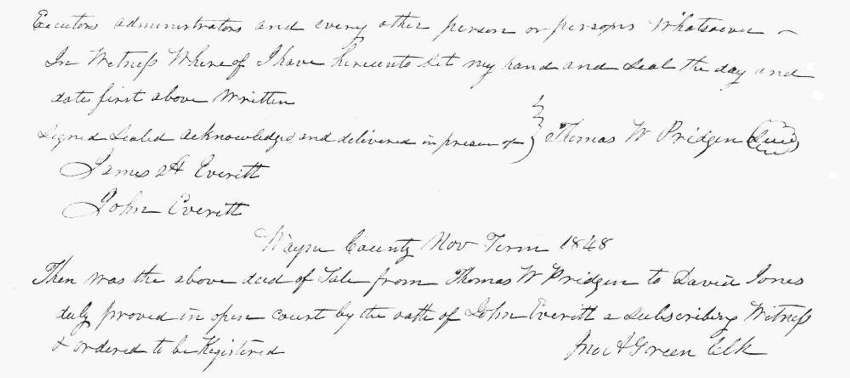 Executors administrators and every other person or persons Whatsoever –
In Witness Whereof I have hereunto set my hand and Seal the day and
date first above Written
Signed Sealed acknowledged and delivered in presen of } Thomas W Pridgen (Seal)
James H Everitt
John Everitt
Wayne County Nov Term 1848
Then was the above deed of Sale from Thomas W Pridgen to David Jones
duly proved in open court by the oath of John Everitt a Subscribing Witness
& ordered to be Registered Jno A Green Clk